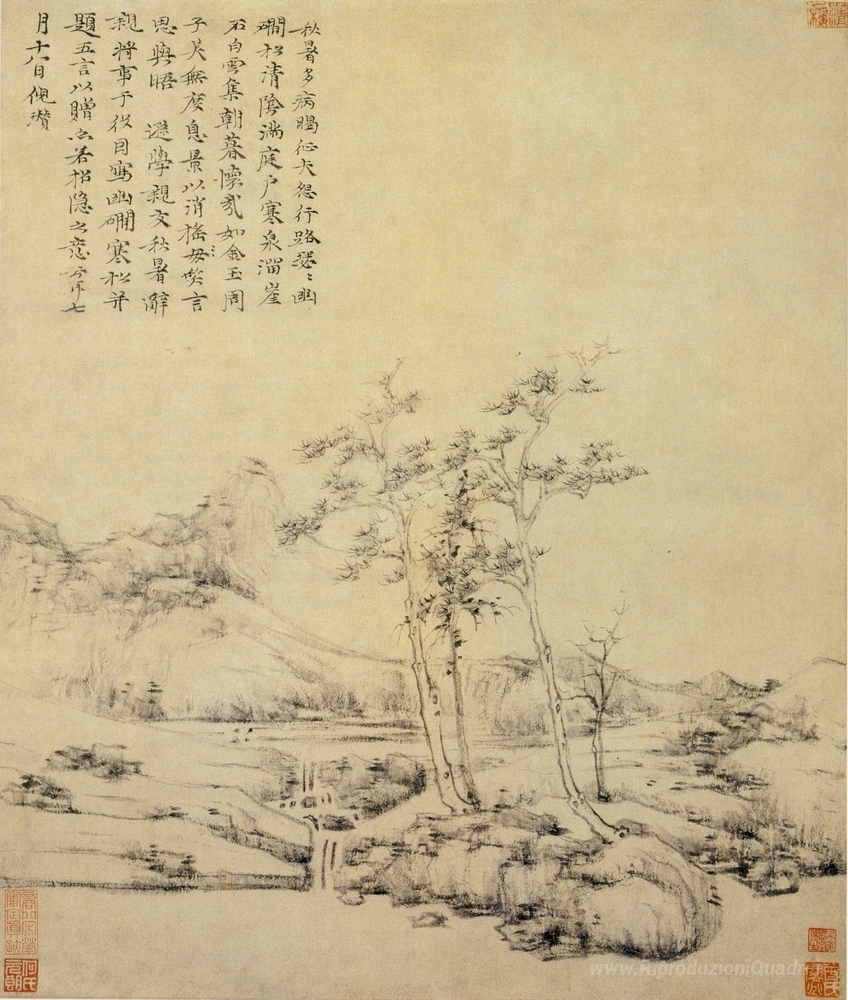 秋暑多病暍征夫怨行路瑟〻幽
磵松清陰滿庭戶寒泉溜崖
石白雲集朝暮懷哉如金玉周
子美無度息景以消搖毋𥬇言
思與晤 遜學親友秋暑辭
親將事于役因寫幽磵寒松并
題五言以贈亦若招隱之意云耳七
月十八日倪瓚
www.RiproduzioniQuadri